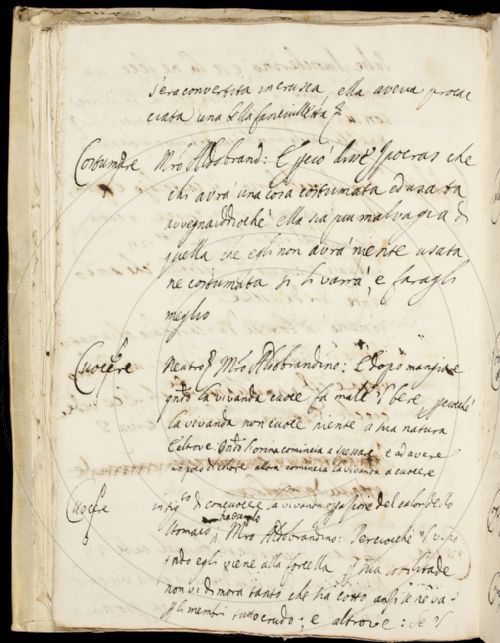 s'era convertita in crusca, ella aveva procac
ciata una bella fanciulletta &c
Costumare Mro Aldobrand: E perciò disse Ypocras che
chi avrà una cosa costumata ed usata
avvegnaddioché ella sia più malvagia di
quella che egli non avrà niente usata
ne costumata si li varrà, e faragli
meglio
Cuocere Mro Aldobrandino: E dopo mangiare
qndo la vivanda cuoce fa male il bere perochè
la vivanda non cuoce niente a sua natura
E altrove. Qndo l'orina comincia a spessare e ad avere
un poco di colore allora comincia la vivanda a cuocere
Cuocere in sigto di concuocere la vivanda operazione del calor dello
stomaco naturale Mro Aldobrandino: Perciocchè il vino
qndo egli viene alla forcella p sua
non vi dimora tanto che sia cotto, anzi se ne va
p li membri tutto crudo; e altrove: se il